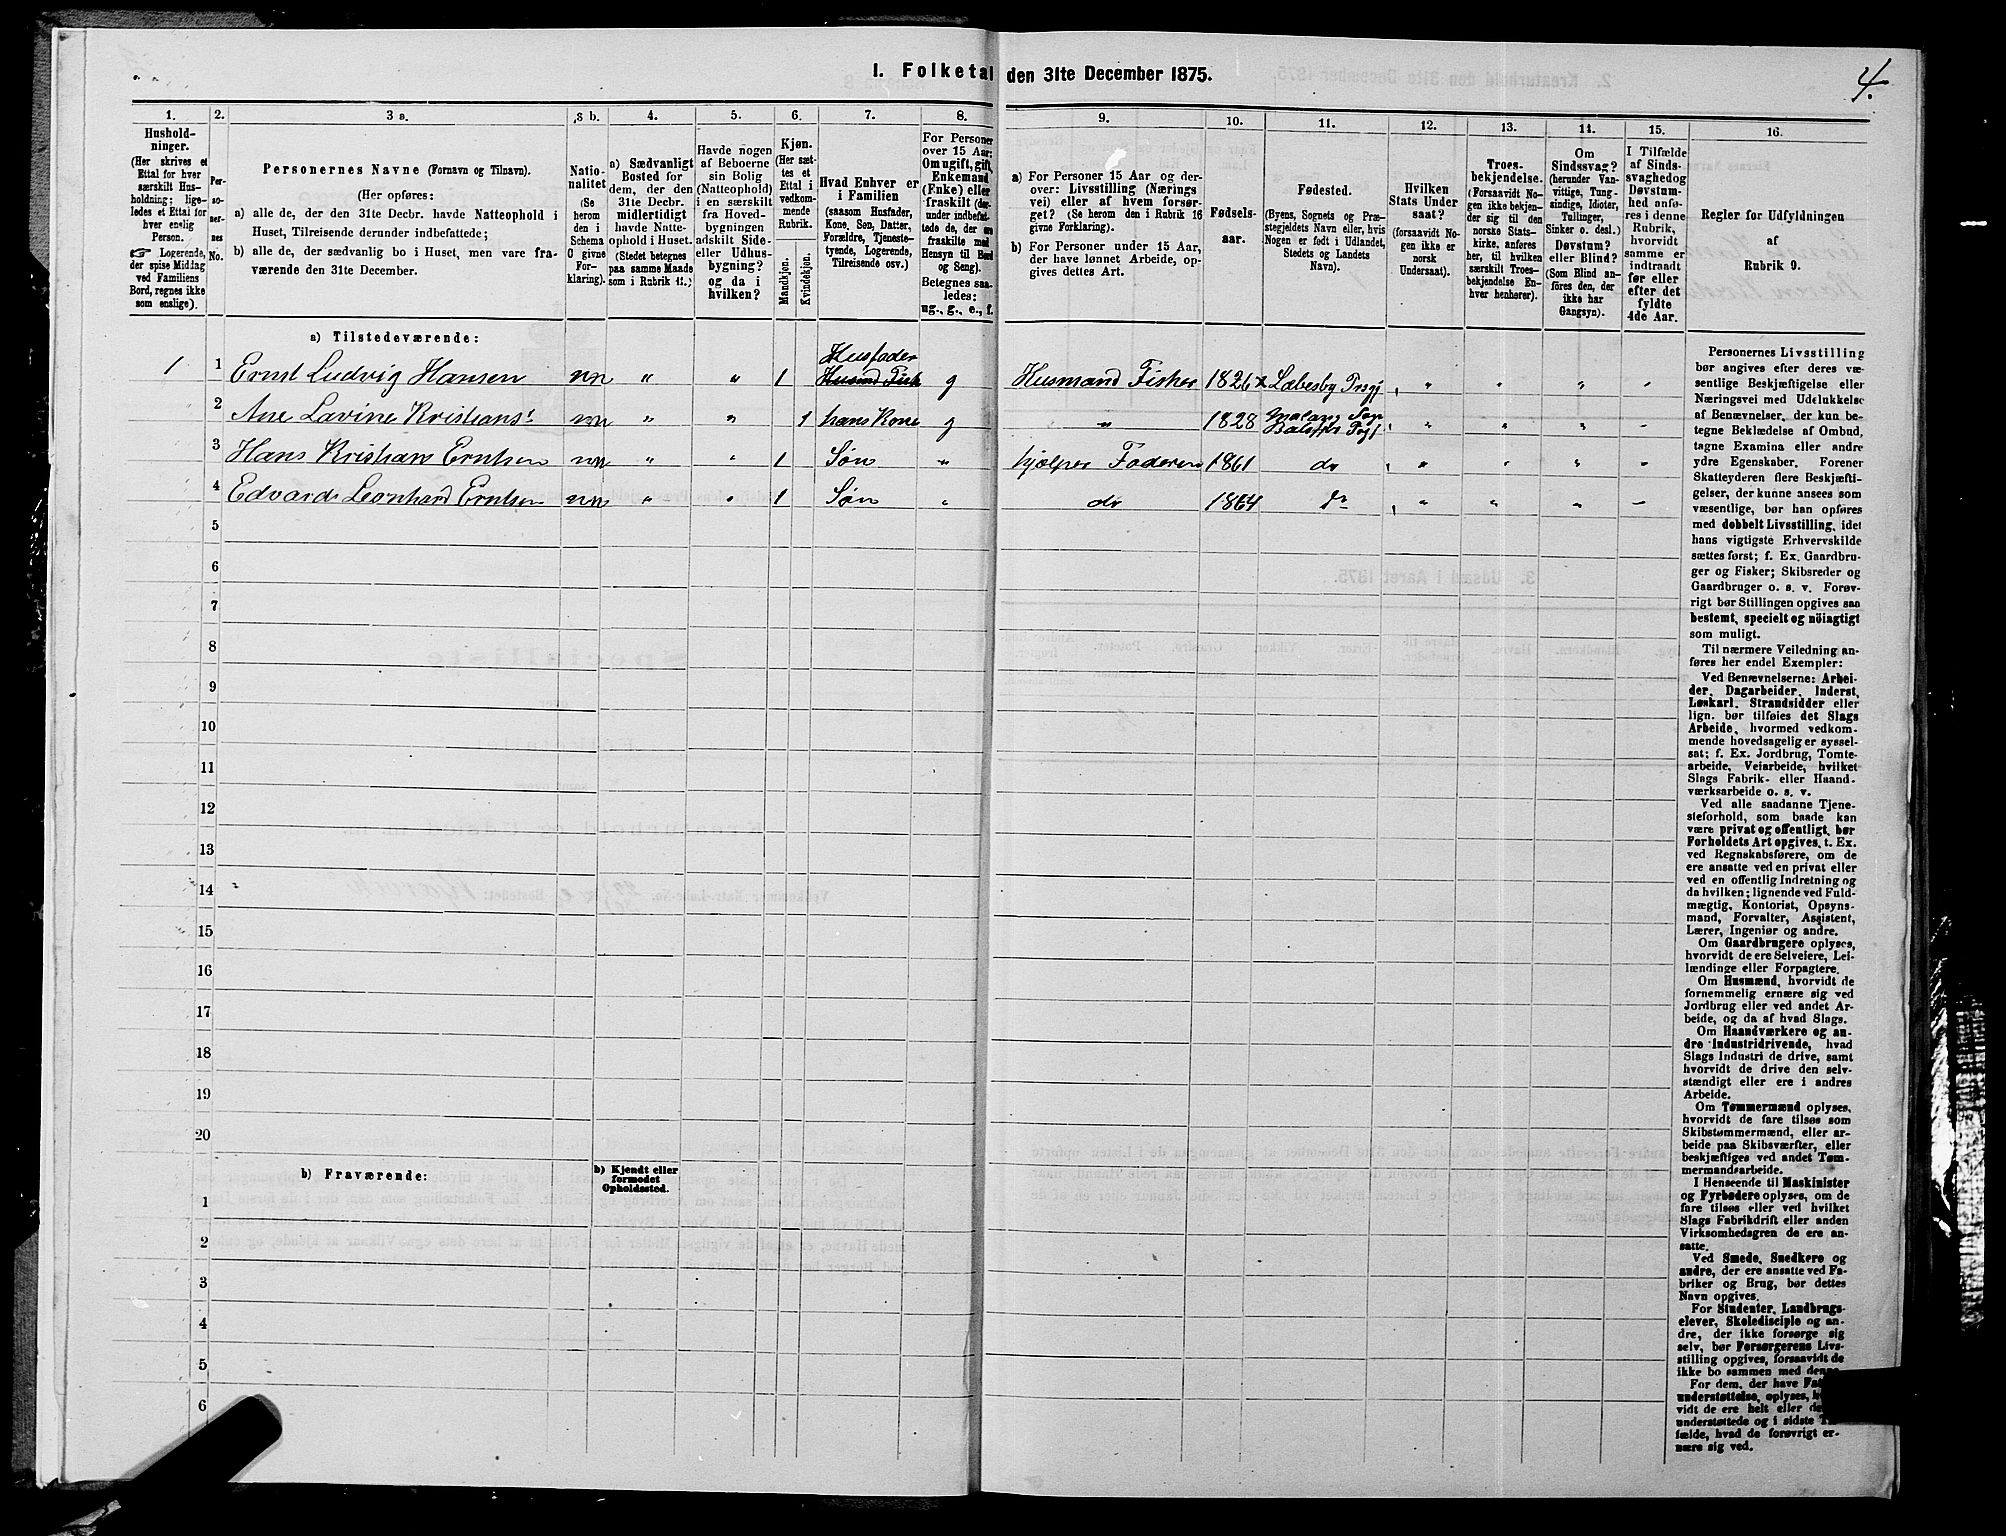 I. Folketal den 31te December 1875.
4.
1. 2. 3 a. 3 b. 4. 5. 6. 7. 8. 9. 10. 11. 12. 13. 14. 15. 16.
Hushold-
ninger.
(Her skrives et
Ettal for hver
særskilt Hus-
holdning; lige-
ledes et Ettal for
hver enslig
Person.
☞ Logerende,
der spise Middag
ved Familiens
Bord, regnes ikke
som enslige).
Per-
so-
ner-
nes
No.
Personernes Navne (Fornavn og Tilnavn).
(Her opføres:
a) alle de, der den 31te Decbr. havde Natteophold i
Huset, Tilreisende derunder indbefattede;
b) alle de, der sædvanlig bo i Huset, men vare fra-
værende den 31te December.
Natio-
nalitet
(Se
herom
den i
Schema
O givne
For-
klaring).
a) Sædvanligt
Bosted for
dem, der den
31te Decbr.
midlertidigt
havde Natte-
ophold i Huset.
(Stedet betegnes
paa samme Maade
som i Rubrik 11.)
Havde nogen
af Beboerne
sin Bolig
(Natteophold)
i en særskilt
fra Hoved-
bygningen
adskilt Side-
eller Udhus-
bygning?
og da i
hvilken?
Kjøn.
(Her sæt-
tes et
Ettal i
vedkom-
mende
Rubrik.
Mandkjøn.
Kvindekjøn.
Hvad Enhver er
i Familien
(saasom Husfader,
Kone, Søn, Datter,
Forældre, Tjeneste-
tyende, Logerende,
Tilreisende osv.)
For Personer
over 15 Aar:
Om ugift, gift,
Enkemand
(Enke) eller
fraskilt (der-
under indbefat-
tede de, der ere
fraskilte med
Hensyn til Bord
og Seng).
Betegnes saa-
ledes:
ug., g., e., f.
a) For Personer 15 Aar og der-
over: Livsstilling (Nærings
vei) eller af hvem forsør-
get? (Se herom den i Rubrik 16
givne Forklaring).
b) For Personer under 15 Aar,
der have lønnet Arbeide, op-
gives dettes Art.
Fødsels-
aar.
Fødested.
(Byens, Sognets og Præ-
stegjeldets Navn eller, hvis
Nogen er født i Udlandet,
Stedets og Landets
Navn).
Hvilken
Stats Under
saat?
(forsaavidt No-
gen ikke er
norsk
Undersaat).
Troes-
bekjendelse.
(Forsaavidt No-
gen ikke bekjen-
der sig til den
norske Stats-
kirke, anføres
her, til hvilken
særskilt Troes-
bekjendelse En-
hver henhører).
Om
Sindssvag?
(herunder Van-
vittige, Tung-
sindige, Idioter,
Tullinger,
Sinker o. desl.)
Døvstum?
eller Blind?
(Som Blind an-
føres den, der
ikke har
Gangsyn).
I Tilfælde
af Sinds-
svaghedog
Døvstum-
hed anfø-
res i denne
Rubrik,
hvorvidt
samme er
indtraadt
før eller
efter det
fyldte
4de Aar.
Regler for Udfyldningen
af
Rubrik 9.
a) Tilstedeværende:
Husfader
1 1 Ernst Ludvig Hansen nn „ „ 1 g Husmand Fisker 1826 Læbesby
2 Ane Lavine nn „ „ 1 hans Kone g „ 1828
3 Hans Kristian Erntsen nn „ „ 1 Søn „ hjælper Faderen 1861 do
4 Edvard Leonhard Erntsen nn „ „ 1 Søn „ do 1864 do
5
6
7
8
9
10
11
12
13
14
15
16
17
18
19
20
b) Fraværende:
b) Kjendt eller
formodet
Opholdssted.
1
2
3
4
5
6
Personernes Livsstilling
bør angives efter deres væ-
sentlige Beskjæftigelse eller
Næringsvei med Udelukkelse
af Benævnelser, der kun be-
tegne Beklædelse af Ombud,
tagne Examina eller andre
ydre Egenskaber. Forener
Skatteyderen flere Beskjæfti-
gelser, der kunne ansees som
væsentlige, bør han opføres
med dobbelt Livsstilling, idet
hans vigtigste Erhvervskilde
sættes først; f. Ex. Gaardbru-
ger og Fisker; Skibsreder og
Gaardbruger o. s. v. Forøv-
rigt bør Stillingen opgives saa
bestemt, specielt og nöiagtigt
som muligt.
Til nærmere Veiledning an-
føres her endel Exempler:
Ved Benævnelserne: Arbei-
der, Dagarbeider, Inderst,
Løskarl, Strandsidder eller
lign. bør tilføies det Slags
Arbeide, hvormed vedkom-
mende hovedsagelig er syssel-
sat; f. Ex. Jordbrug, Tomte-
arbeide, Veiarbeide, hvilket
Slags Fabrik- eller Haand-
værksarbeide o. s. v.
Ved alle saadanne Tjene-
steforhold, som baade kan
være privat og offentligt, bør
Forholdets Art opgives, t. Ex.
ved Regnskabsførere, om de
ere ansatte ved en privat eller
ved en offentlig Indretning og
da hvilken; lignende ved Fuld-
mægtig, Kontorist, Opsyns-
mand, Forvalter, Assistent,
Lærer, Ingeniør og andre.
Om Gaardbrugere oplyses,
hvorvidt de ere Selveiere, Lei-
lændinge eller Forpagtere.
Om Husmænd, hvorvidt de
fornemmelig ernære sig ved
Jordbrug eller ved andet Ar-
beide, og da af hvad Slags.
Om Haandværkere og an-
dre industridrivende, hvad
Slags Industri de drive, samt
hvorvidt de drive den selv-
stændigt eller ere i andres
Arbeide.
Om Tømmermænd oplyses,
hvorvidt de fare tilsøs som
Skibstømmermænd, eller ar-
beide paa Skibsværfter, eller
beskjæftiges ved andet Tøm-
mermandsarbeide.
I Henseende til Maskinister
og Fyrbødere oplyses, om de
fare tilsøs eller ved hvilket
Slags Fabrikdrift eller anden
Virksomhedsgren de ere an-
satte.
Ved Smede, Snedkere og
andre, der ere ansatte ved Fa-
briker og Brug, bør dettes
Navn opgives.
For Studenter, Landbrugs-
elever, Skoledisciple og an-
dre, der ikke forsørge sig
selv, bør Forsørgerens Livs-
stilling opgives, forsaavidt de
ikke bo sammen med denne.
For dem, der have
understøttelse, oplyses,
vidt de ere helt eller
understøttede og i sidste
fælde, hvad de forøvrigt er-
nære sig ved.